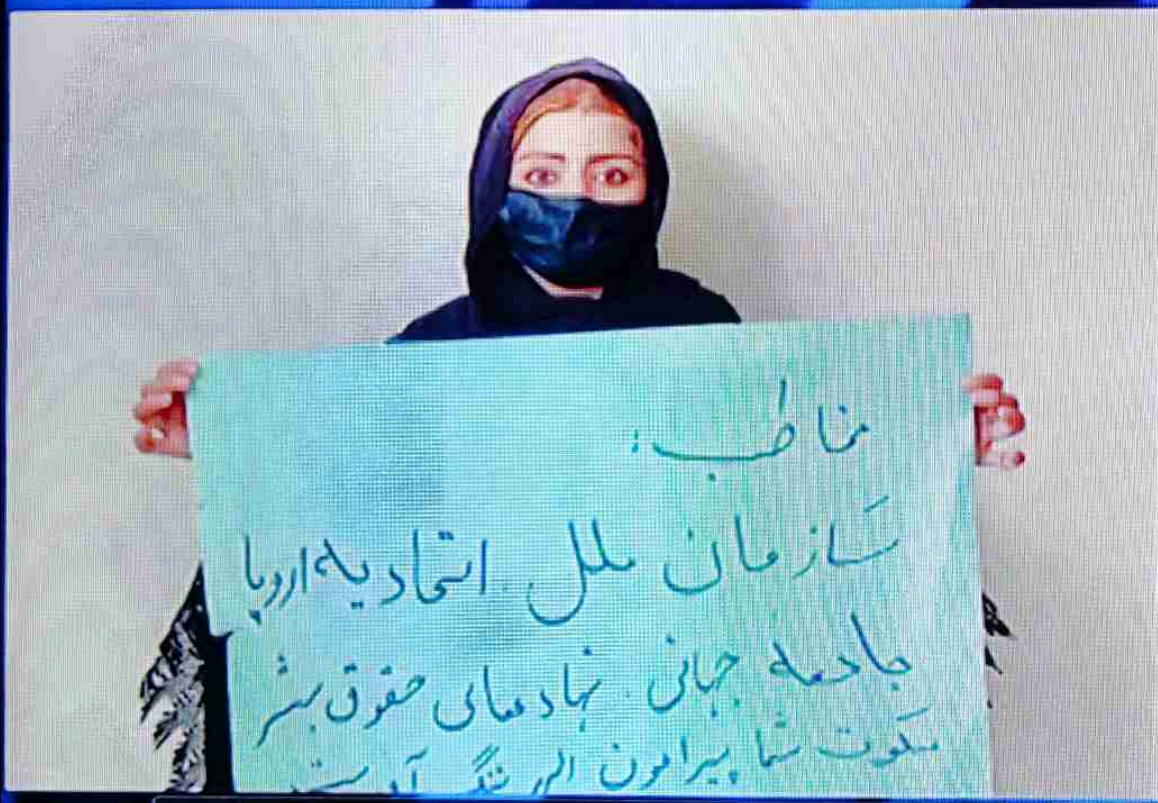 مخاطب:
سازمان ملل. اتحادیه اروپا
جامعه جهانی. نهادهای حقوق بشر
سکوت شما پیرامون ننگ